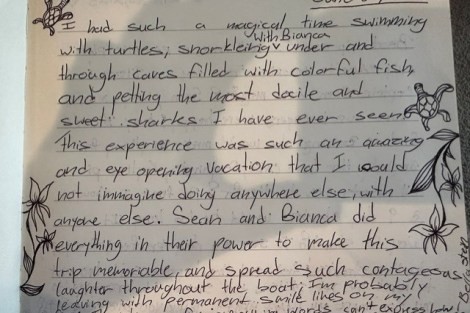 I had such a magical time swimming
with turtles, snorkleing with Bianca under and
through caves filled with colorful fish,
and petting the most docile and
sweet sharks I have ever seen.
This experience was such an amazing
and eye opening vacation that I could
not immagine doing anywhere else, with
anyone else. Sean and Bianca did
everything in their power to make this
trip memorable, and spread such contageous
laughter throughout the boat; I'm probably
leaving with permanent smile lines on my
words can't express how